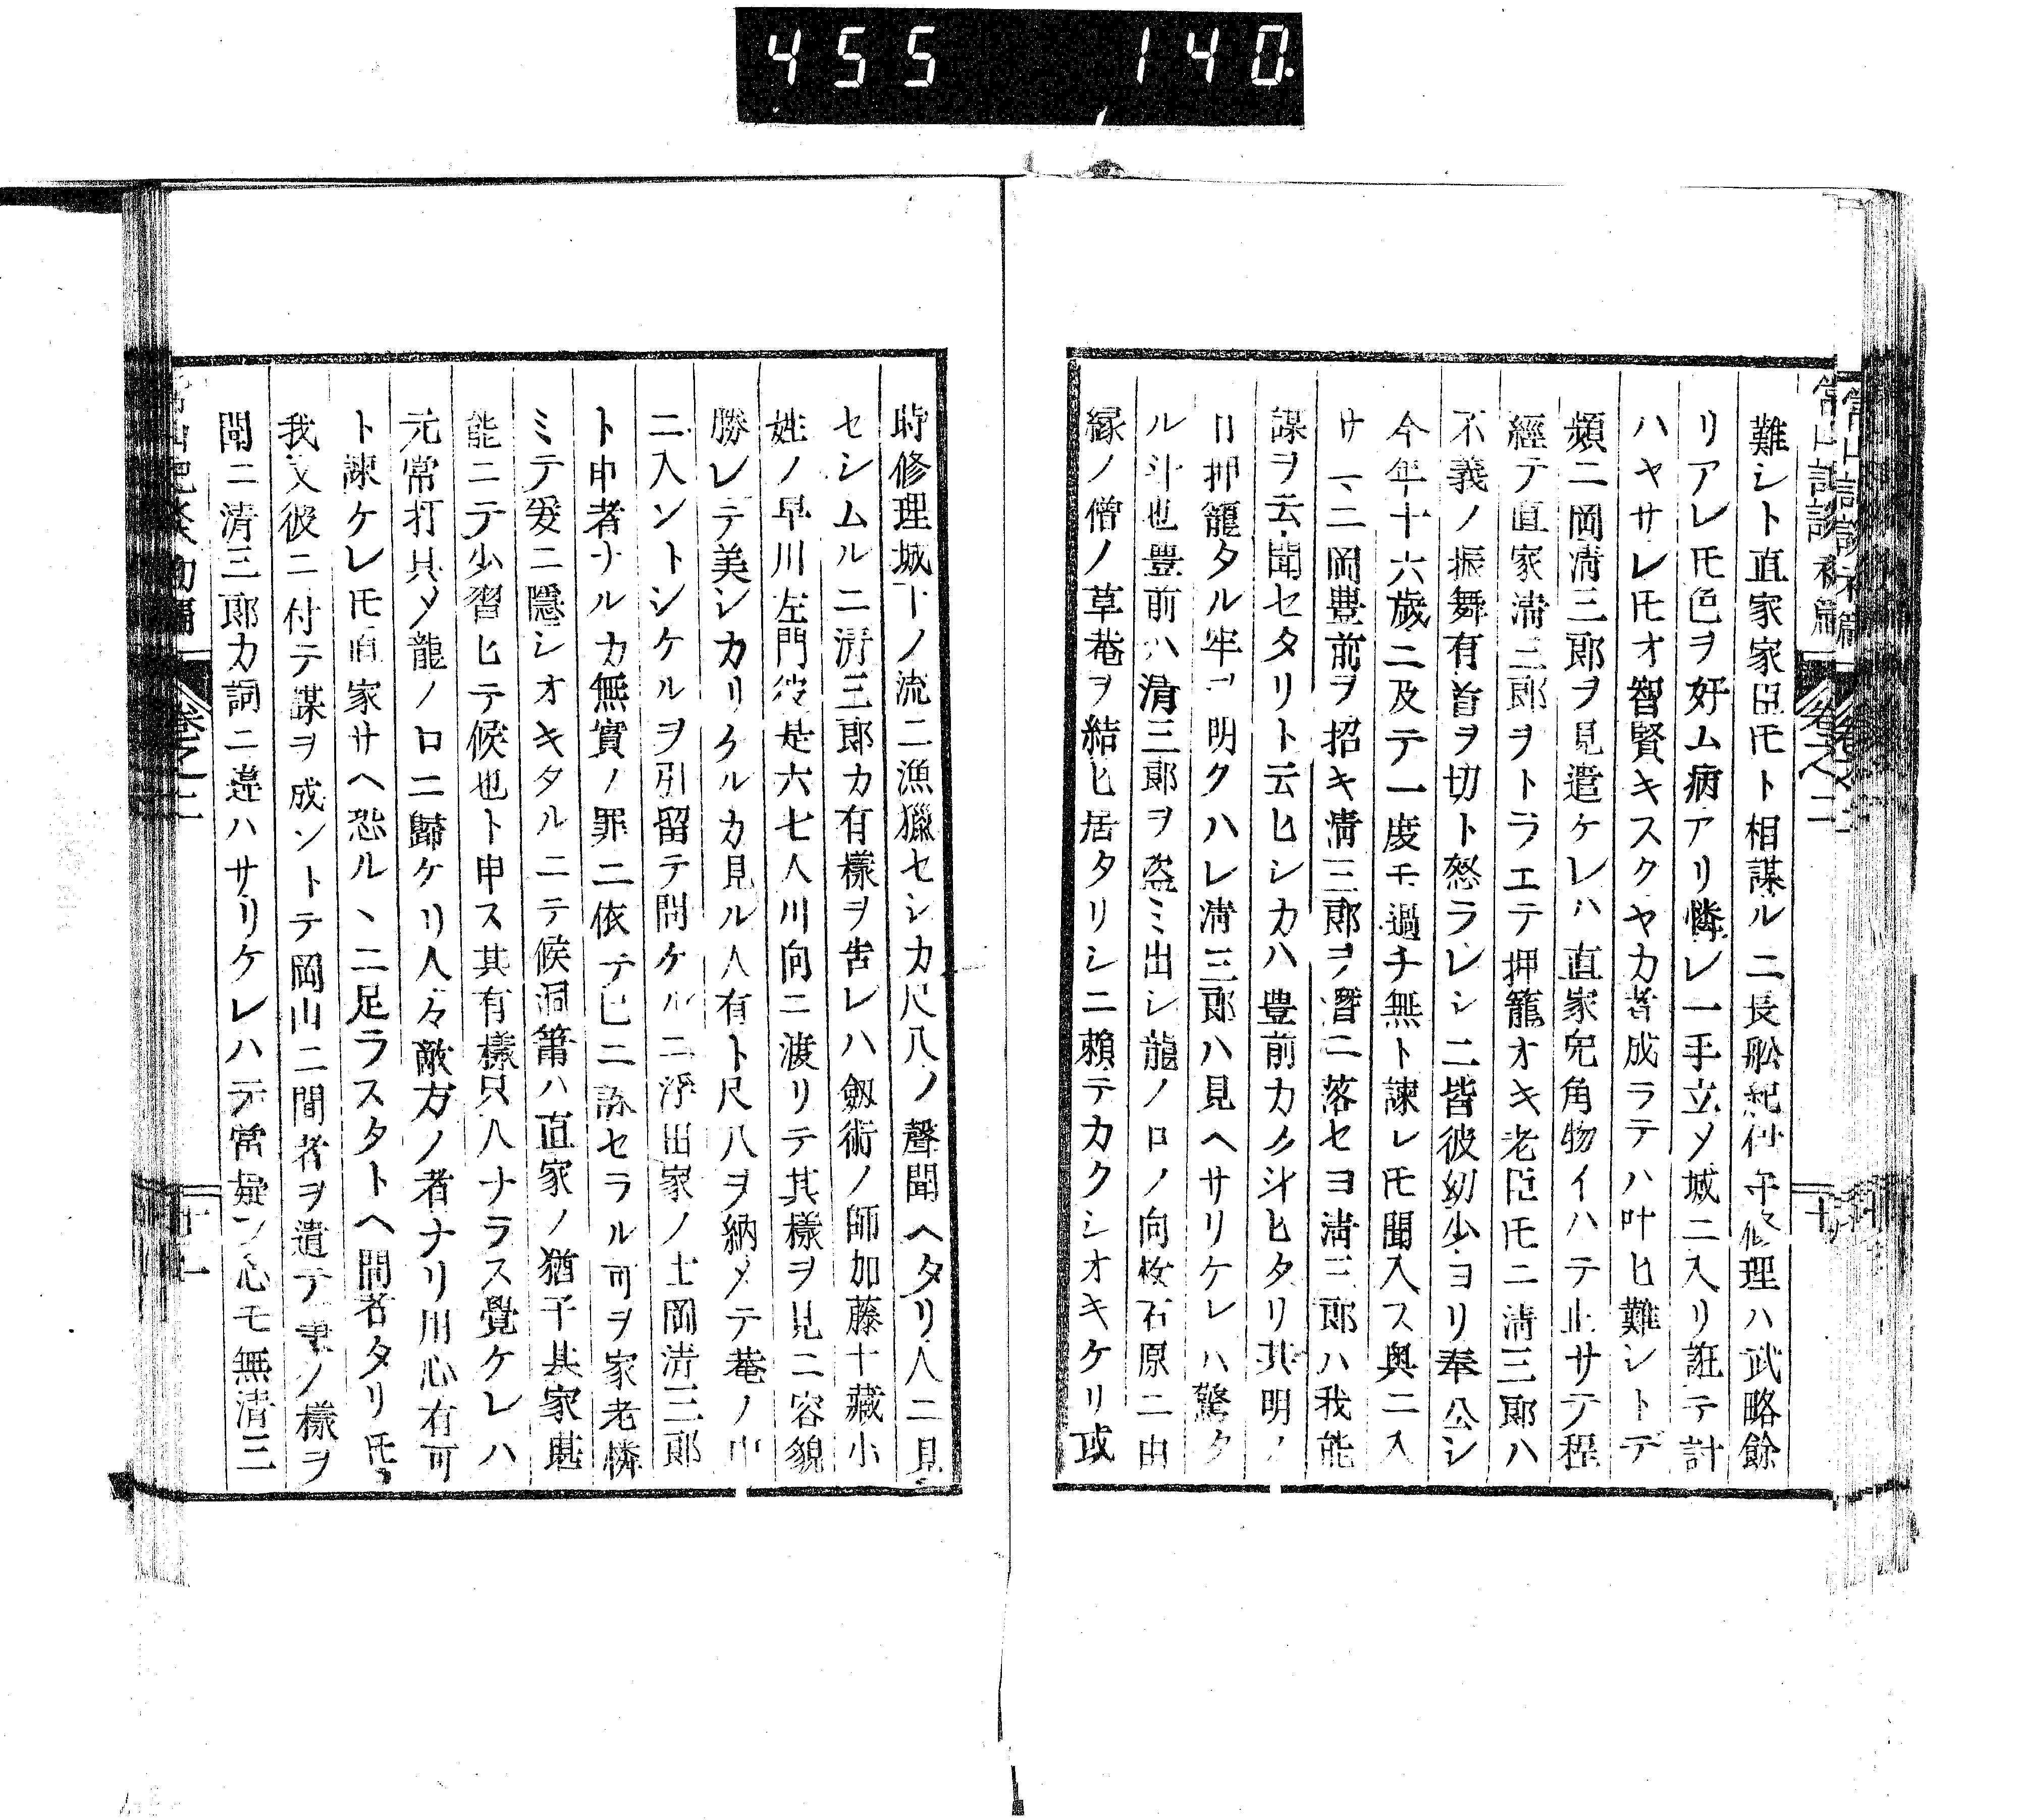 455 140
難シト直家家臣𪜈ト相謀ルニ長舩紀伊守修理ハ武略餘
リアレ𪜈色ヲ好ム病アリ憐レ一手立〆城ニ入リ誑テ計
ハヤサレ𪜈オ智賢キスクヤカ者成ラテハ叶ヒ難シトデ
頻ニ岡淸三郎ヲ見遣ケレハ直家兎角物イハテ止サテ程
經テ直家淸三郎ヲトラエテ押籠オキ老臣𪜈ニ淸三郎ハ
不義ノ振舞有首ヲ切ト怒ラレシニ皆彼幼少ヨリ奉公シ
今年十六歲ニ及テ一度モ過チ無ト諫レ𪜈聞入ス奧ニ入
サヽニ岡豊前ヲ招キ淸三郎ヲ潛ニ落セヨ淸三郎ハ我能
謀ヲ云聞セタリト云ヒシカハ豊前カク計ヒタリ其明ノ
日押籠タル牢ヲ明クハレ淸三郎ハ見ヘサリケレハ驚タ
ル斗也豊前ハ淸三郎ヲ盗ミ出シ龍ノ口ノ向牧石原ニ由
縁ノ僧ノ草菴ヲ結ヒ居タリシニ賴テカクシオキケリ或
常山記談初編 卷之二 十
時修理城下ノ流ニ漁獵セシカ尺八ノ聲聞ヘタリ人ニ見
セシムルニ淸三郎カ有樣ヲ告レハ劔術ノ師加藤十藏小
姓ノ早川左門彼是六七人川向ニ渡リテ其樣ヲ見ニ容貌
勝レテ美シカリケルカ見ル人有ト尺八ヲ納メテ菴ノ中
ニ入ントシケルヲ引留テ問ケルニ浮田家ノ士岡淸三郎
ト申者ナルカ無實ノ罪ニ依テ已ニ誅セラル可ヲ家老憐
ミテ爰ニ隱シオキタルニテ候洞簫ハ直家ノ猶子其家甚
能ニテ少習ヒテ候也ト申ス其有樣只人ナラス覺ケレハ
元常打具〆龍ノ口ニ歸ケリ人々敵方ノ者ナリ用心有可
ト諫ケレ𪜈直家サヘ恐ルヽニ足ラスタトヘ間者タリ𪜈
我又彼ニ付テ謀ヲ成ントテ岡山ニ間者ヲ遣テ事ノ樣ヲ
聞ニ淸三郎カ詞ニ違ハサリケレハ元常疑フ心モ無淸三
常山記談初編 卷之二 十一